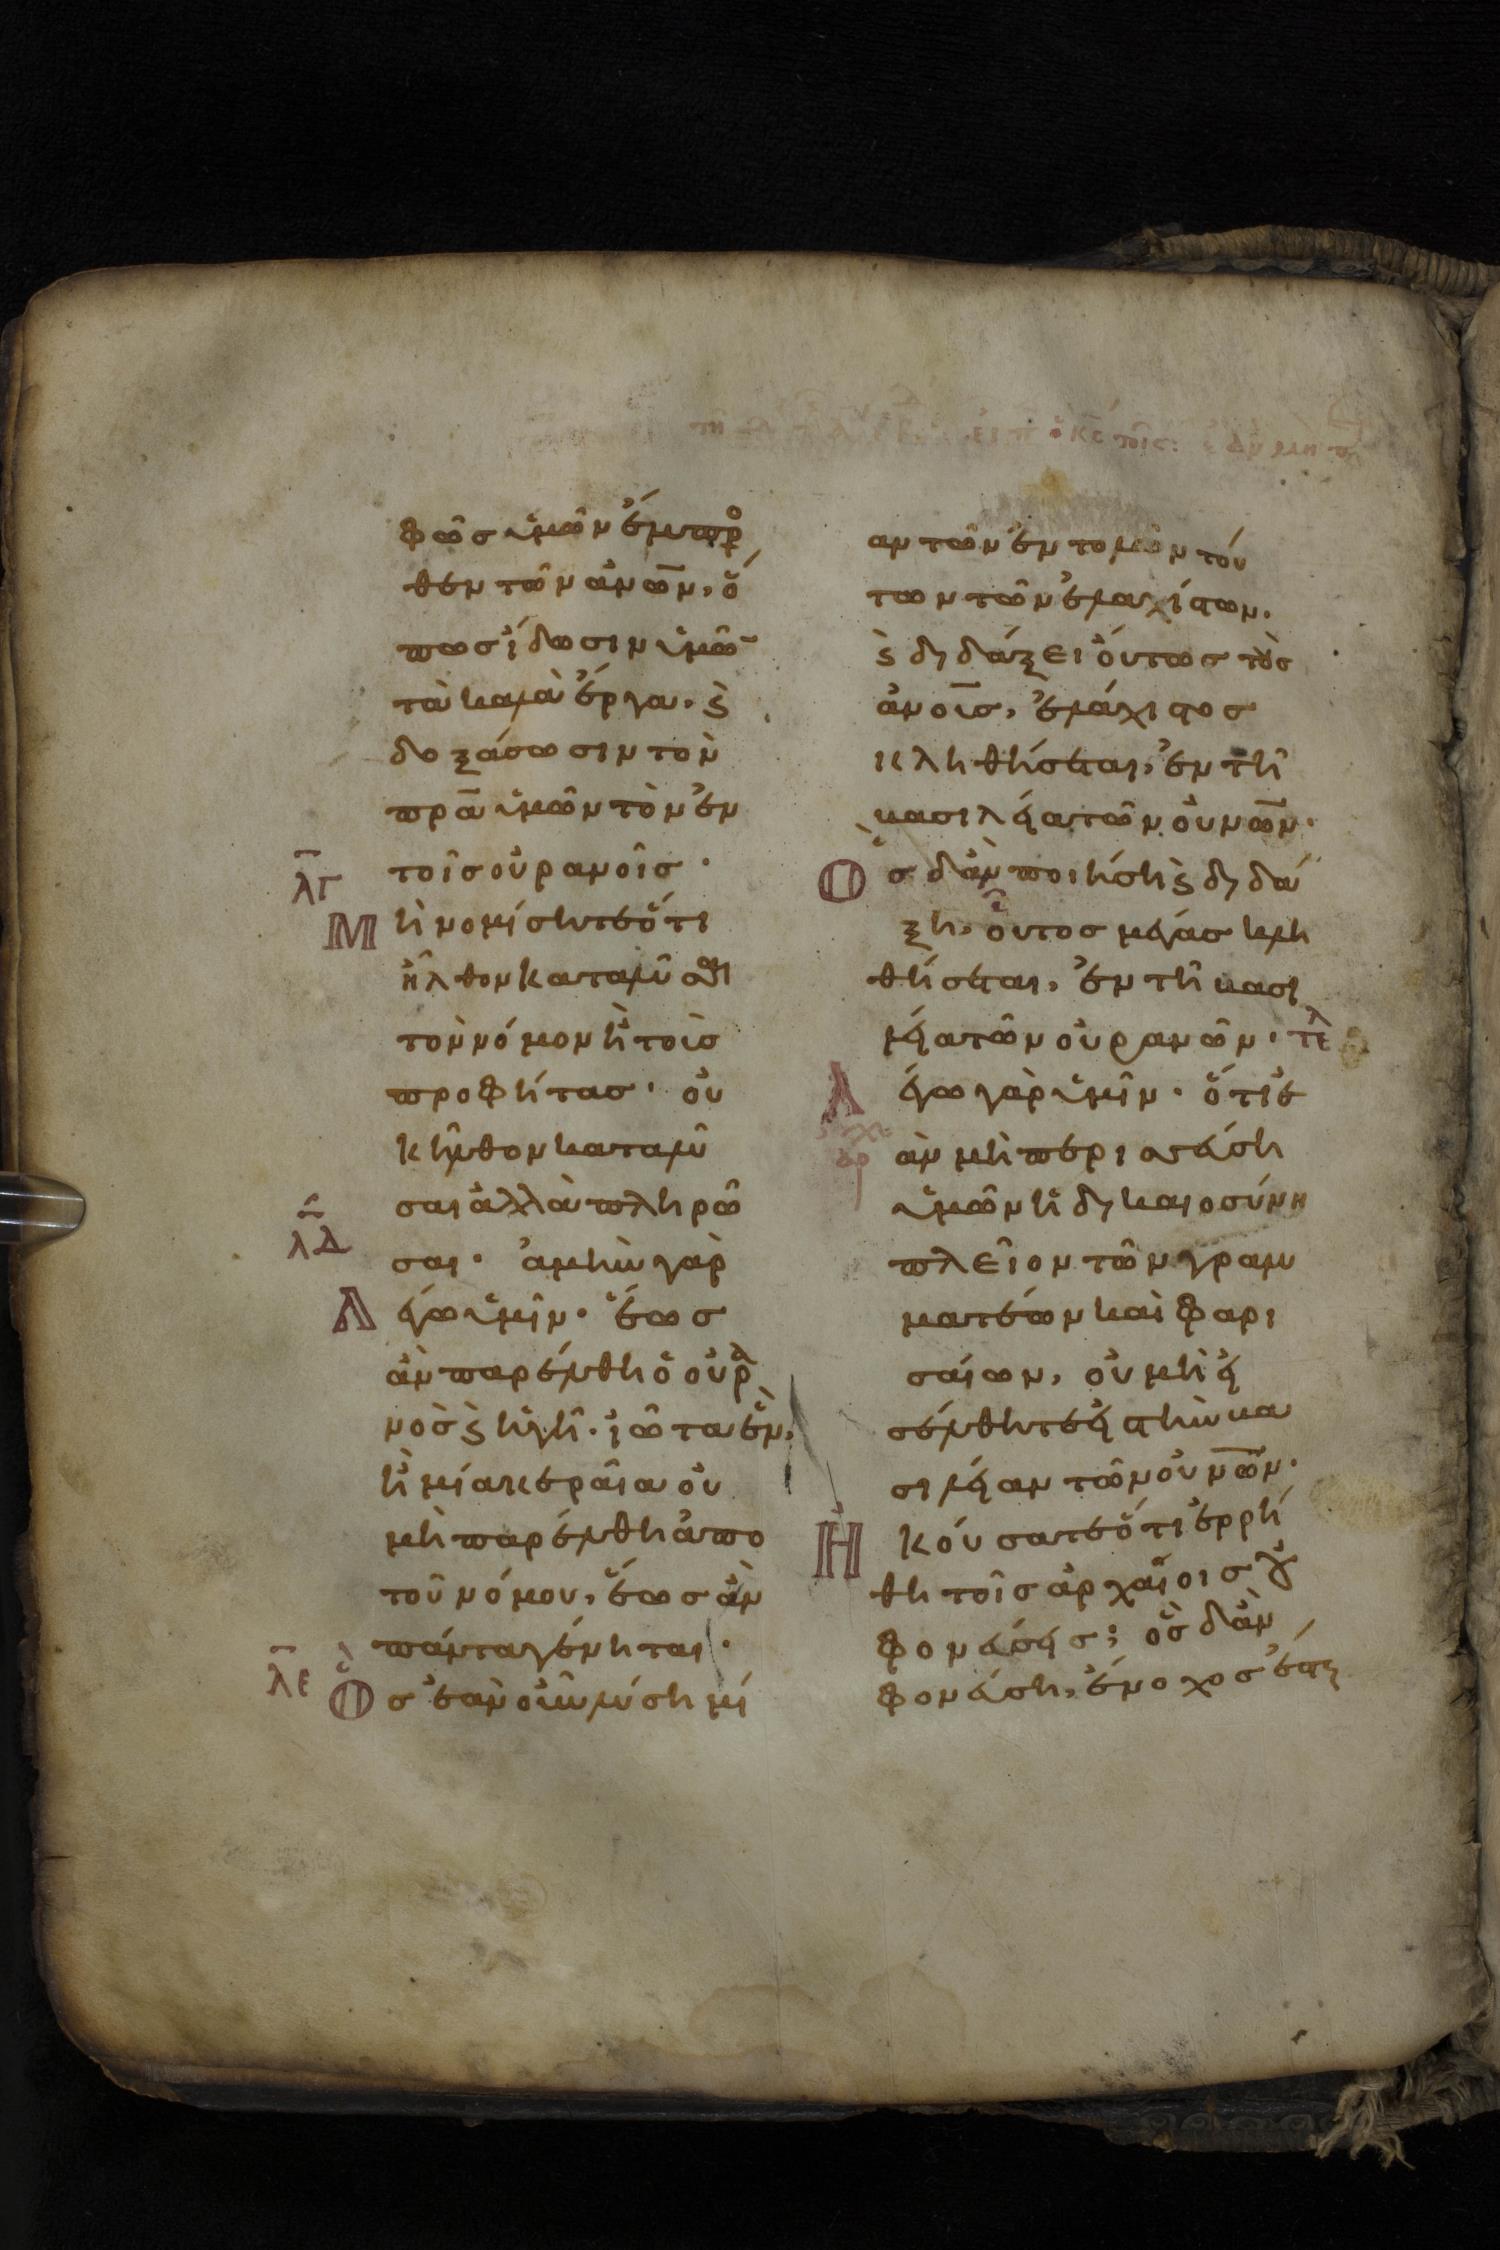 εἶπ ὁ κ̅ς̅ τοῖς:
φῶς ὑμῶν ἔμπρο
θεν τῶν ἀν̅ω̅ν, ὅ
πως ἴδωσιν ὑμῶ
τὰ καλὰ ἔργα· ϗ
δοξάσωσιν τὸν
π̅ρ̅α ὑμῶν τὸν ἐν
τοῖς οὐρανοῖς·
λγ
Μὴ νομίσητε ὅτι
ἦλθον καταλῦσαι
τὸν νόμον ἢ τοὺς
προφήτας· οὐ
κ ἦλθον καταλῦ
σαι ἀλλὰ πληρῶ
λδ
σαι· ἀμὴν γὰρ
Λέγω ὑμῖν· ἕως
ἂν παρέλθη ὁ οὐρα
νὸς ϗ ἡ γῆ· ἰῶτα ἓν,
ἢ μία κεραῖα οὐ
μὴ παρέλθη ἀπὸ
τοῦ νόμου, ἕως ἂν
πάντα γένηται·
λε
Ὃς ἐὰν οὖν λύση μί
αν τῶν ἐντολῶν τού
των τῶν ἐλαχίστων,
ϗ διδάξει οὕτως τοὺς
ἀν̅ο̅ι̅ς, ἐλάχιστος
κληθήσεται, ἐν τῆ
βασιλεία τῶν οὐν̅ω̅ν·
Ὃς δἂν ποιήση ϗ διδά
ξη, οὗτος μέγας κλη
θήσεται, ἐν τῆ βασι
λεία τῶν οὐρανῶν· τελ
Λέγω γὰρ ὑμῖν· ὅτι ἐ
ὰν μὴ περισσεύση
ὑμῶν ἡ δικαιοσύνη
πλεῖον τῶν γραμ
ματέων καὶ φαρι
σαίων, οὐ μὴ εἰ
σέλθητε εἰς τὴν βα
σιλείαν τῶν οὐν̅ω̅ν·
Ἠκούσατε ὅτι ἐρρή
θη τοῖς ἀρχαίοις οὐ
φονεύσεις; ὃς δἂν
φονεύση, ἔνοχος ἔσται